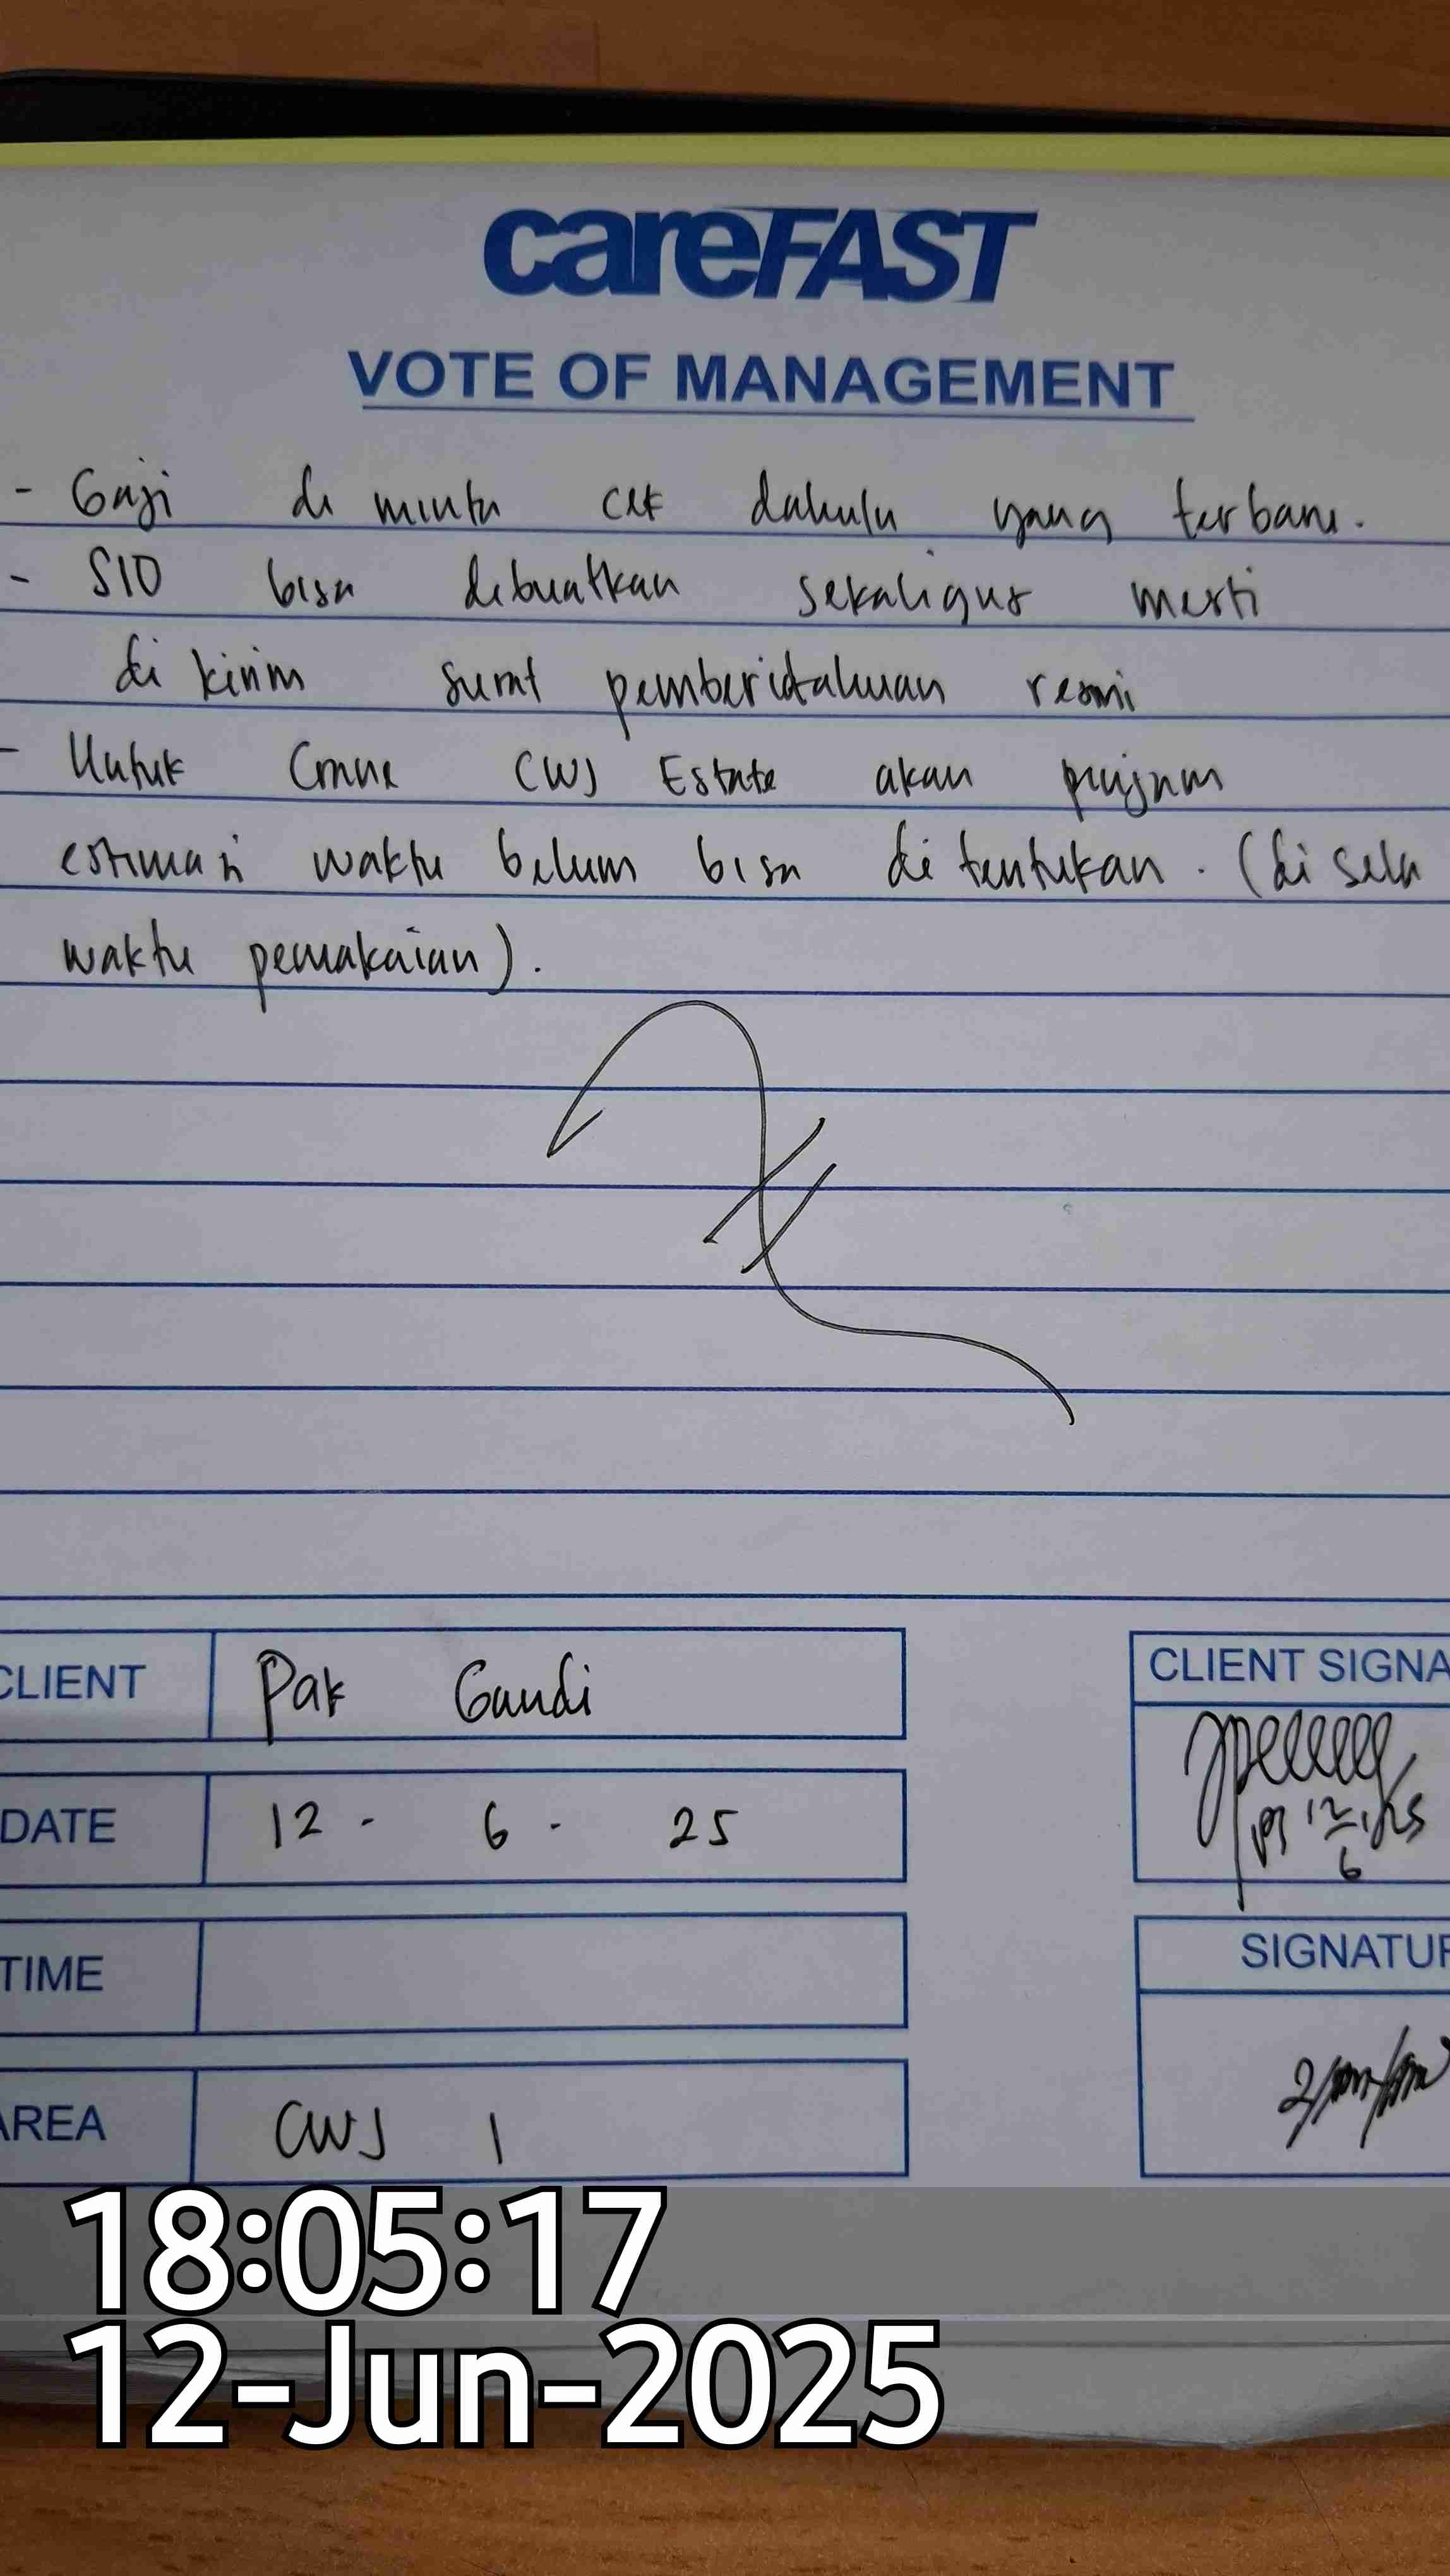 careFAST
VOTE OF MANAGEMENT
- Gaji di minta cek dahulu yang terbaru.
- SIO bisa dibuatkan sekaligus mesti
di kirim surat pemberitahuan resmi
- Untuk Crane CWJ Estate akan pinjam
estimasi waktu belum bisa di tentukan. (di sela
waktu pemakaian).
CLIENT Pak Gandi
CLIENT SIGNA
DATE 12 - 6 - 25
12/6 25
TIME
SIGNATUR
AREA CWJ 1
18:05:17
12-Jun-2025